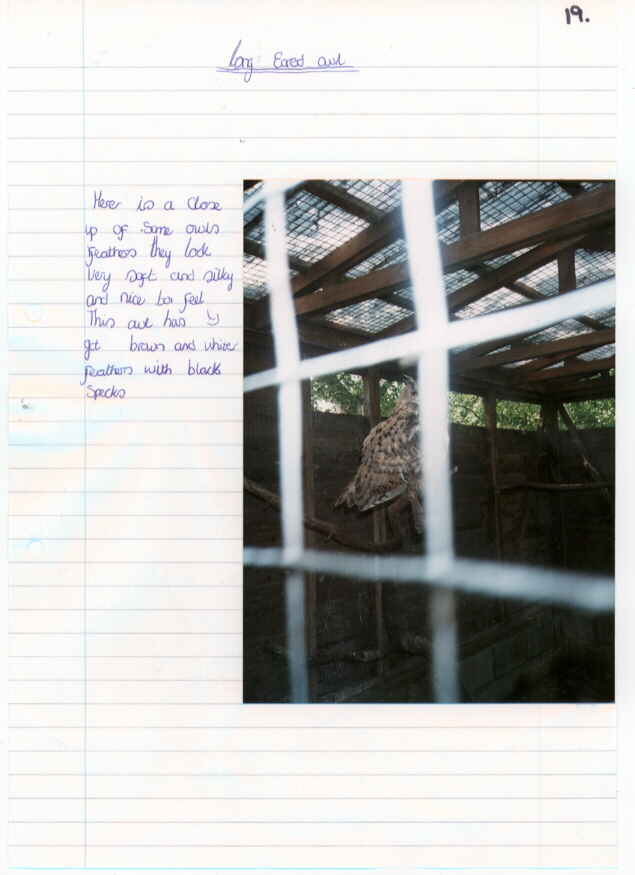 19.
Long Eared owl
Here is a close
up of some owls
feathers they look
very soft and silky
and nice to feel
This owl has
got brown and white
feathers with black
specks